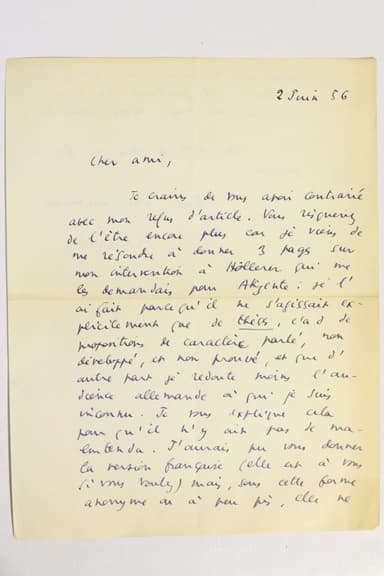 2 Juin 56
Cher ami,
Je crains de vous avoir contrarié
avec mon refus d'article. Vous risqueriez
de l'être encore plus car je viens de
me résoudre à donner 3 pages sur
mon intervention à Höllerer qui me
les demandait pour Akzente : si l'
ai fait parce qu'il ne s'agissait ex-
plicitement que de thèses, c'à d de
propositions de caractère parlé, non
développé, et non prouvé, et que d'
autre part je redoute moins l'au-
dience allemande à qui je suis
inconnu. Je vous explique cela
pour qu'il n'y ait pas de ma-
lentendu. J'aurais pu vous donner
la version française (elle est à vous
si vous voulez) mais, sous cette forme
anonyme ou à peu près, elle ne